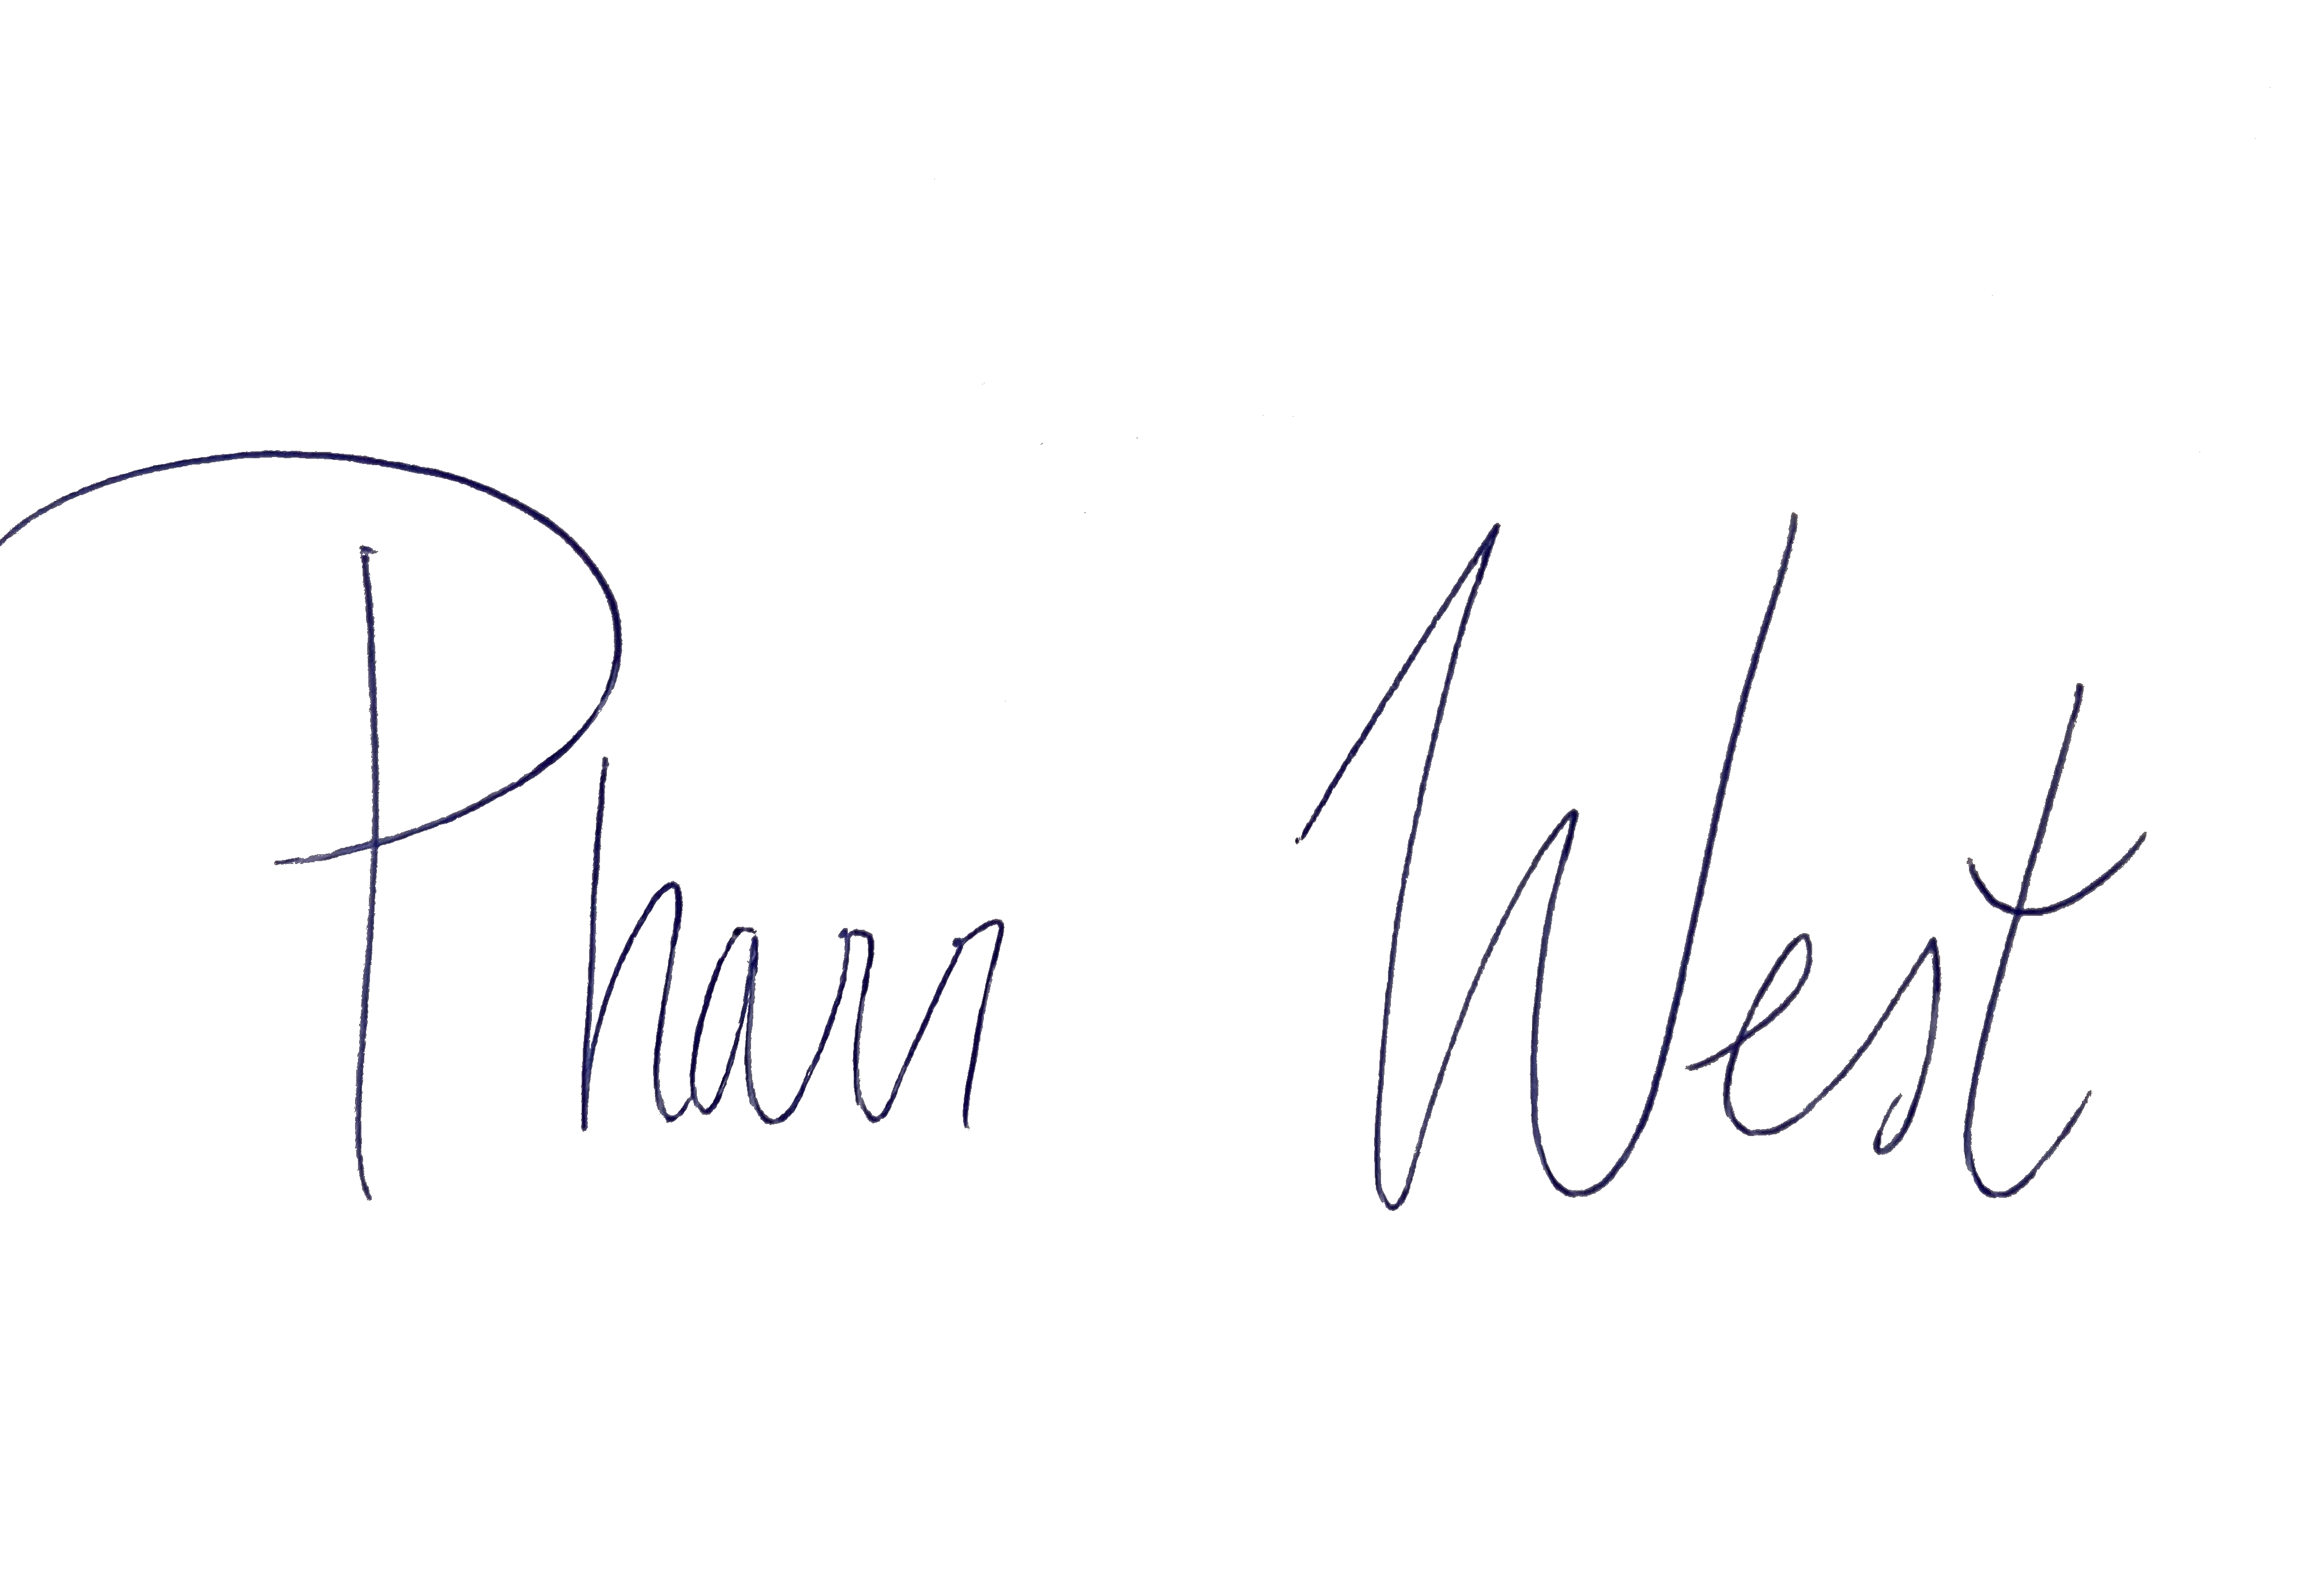 Pharr West